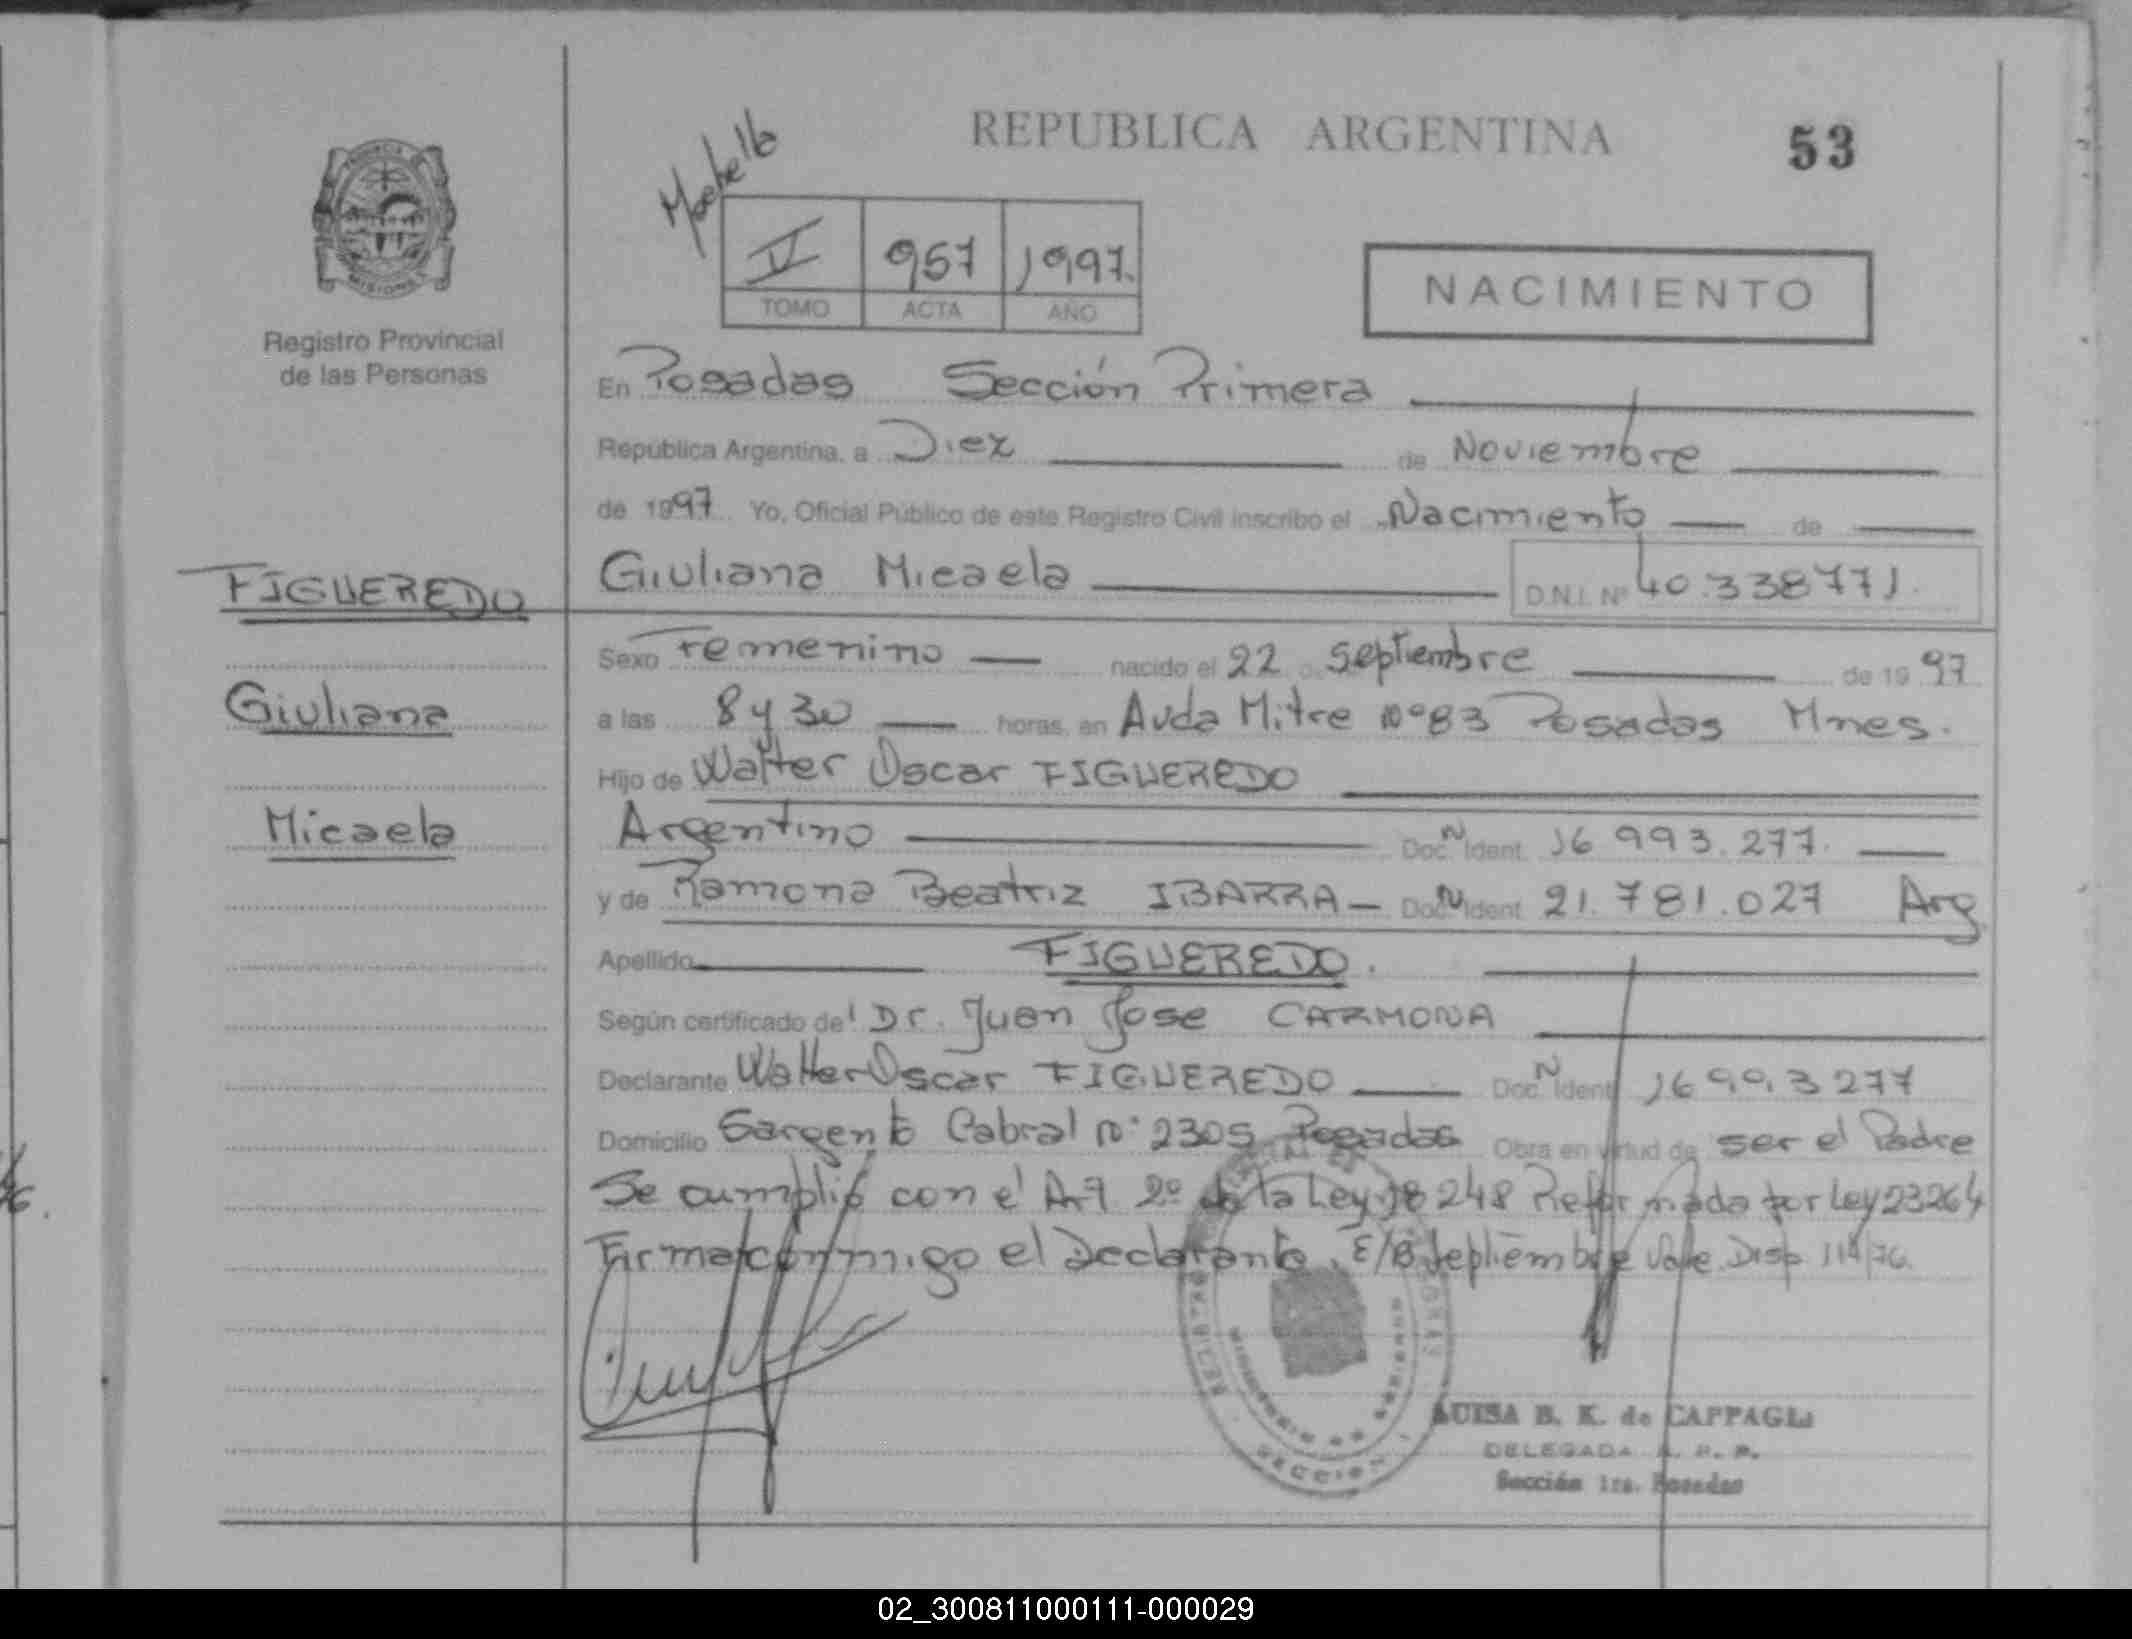 REPUBLICA ARGENTINA
53
V 957 1997.
TOMO ACTA AÑO
NACIMIENTO
PROVINCIA DE MISIONES
Registro Provincial
de las Personas
En Posadas Sección Primera
República Argentina, a Diez de Noviembre
de 1997 Yo, Oficial Público de este Registro Civil inscribo el Nacimiento de
FIGUEREDO
Giuliana Micaela D.N.I. Nº 40.338771.
Sexo Femenino nacido el 22 de septiembre de 19 97
Giuliana
a las 8 y 30 horas, en Avda Mitre nº 83 Posadas Mnes.
Hijo de Walter Oscar FIGUEREDO
Micaela
Argentino Doc. N Ident. 16 993.277.
y de Ramona Beatriz IBARRA Doc. N Ident 21.781.027 Arg
Apellido FIGUEREDO.
Según certificado del Dr. Juan Jose CARMONA
Declarante Walter Oscar FIGUEREDO Doc. N Ident 16 993 277
Domicilio Sargento Cabral nº 2305 Posadas Obra en virtud de ser el Padre
Se cumplió con el Art 2º de la Ley 18248 Reformada por Ley 23264
Firma conmigo el Declarante. E/B Septiembre Vale Disp 114/76.
SECCION 1
LUISA B. K. de CAPPAGLI
DELEGADA R. P. P.
Sección 1ra. Posadas
02_300811000111-000029